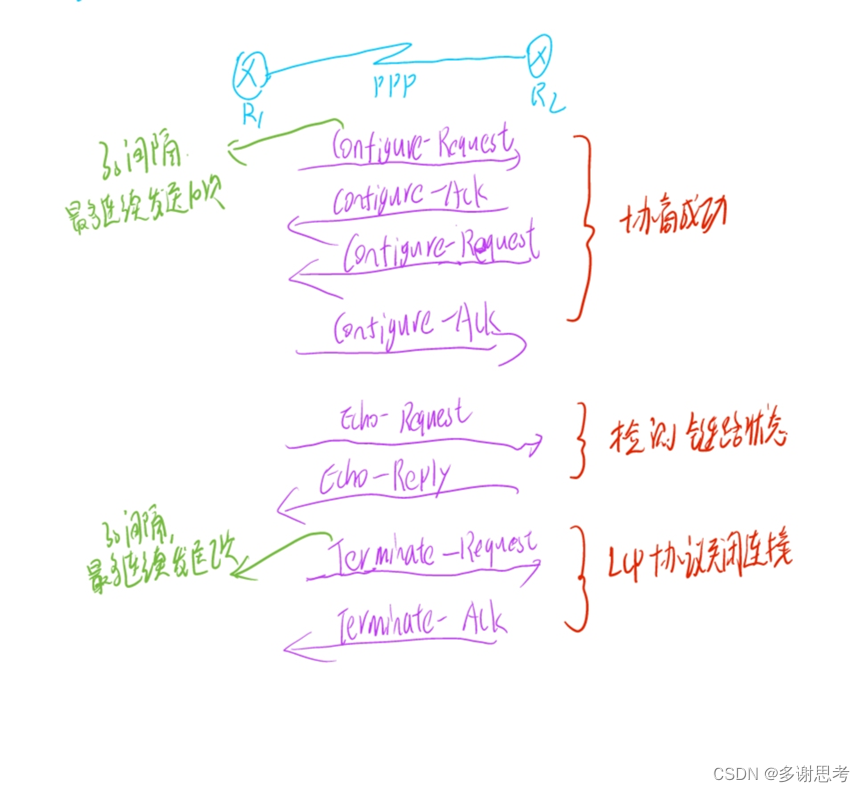 R1
PPP
R2
3s间隔
最多连续发送10次
Configure-Request
Configure-Ack
Configure-Request
Configure-Ack
协商成功
Echo-Request
Echo-Reply
检测链路状态
3s间隔,
最多连续发送2次
Terminate-Request
Terminate-Ack
LCP协议关闭连接
CSDN @多谢思考